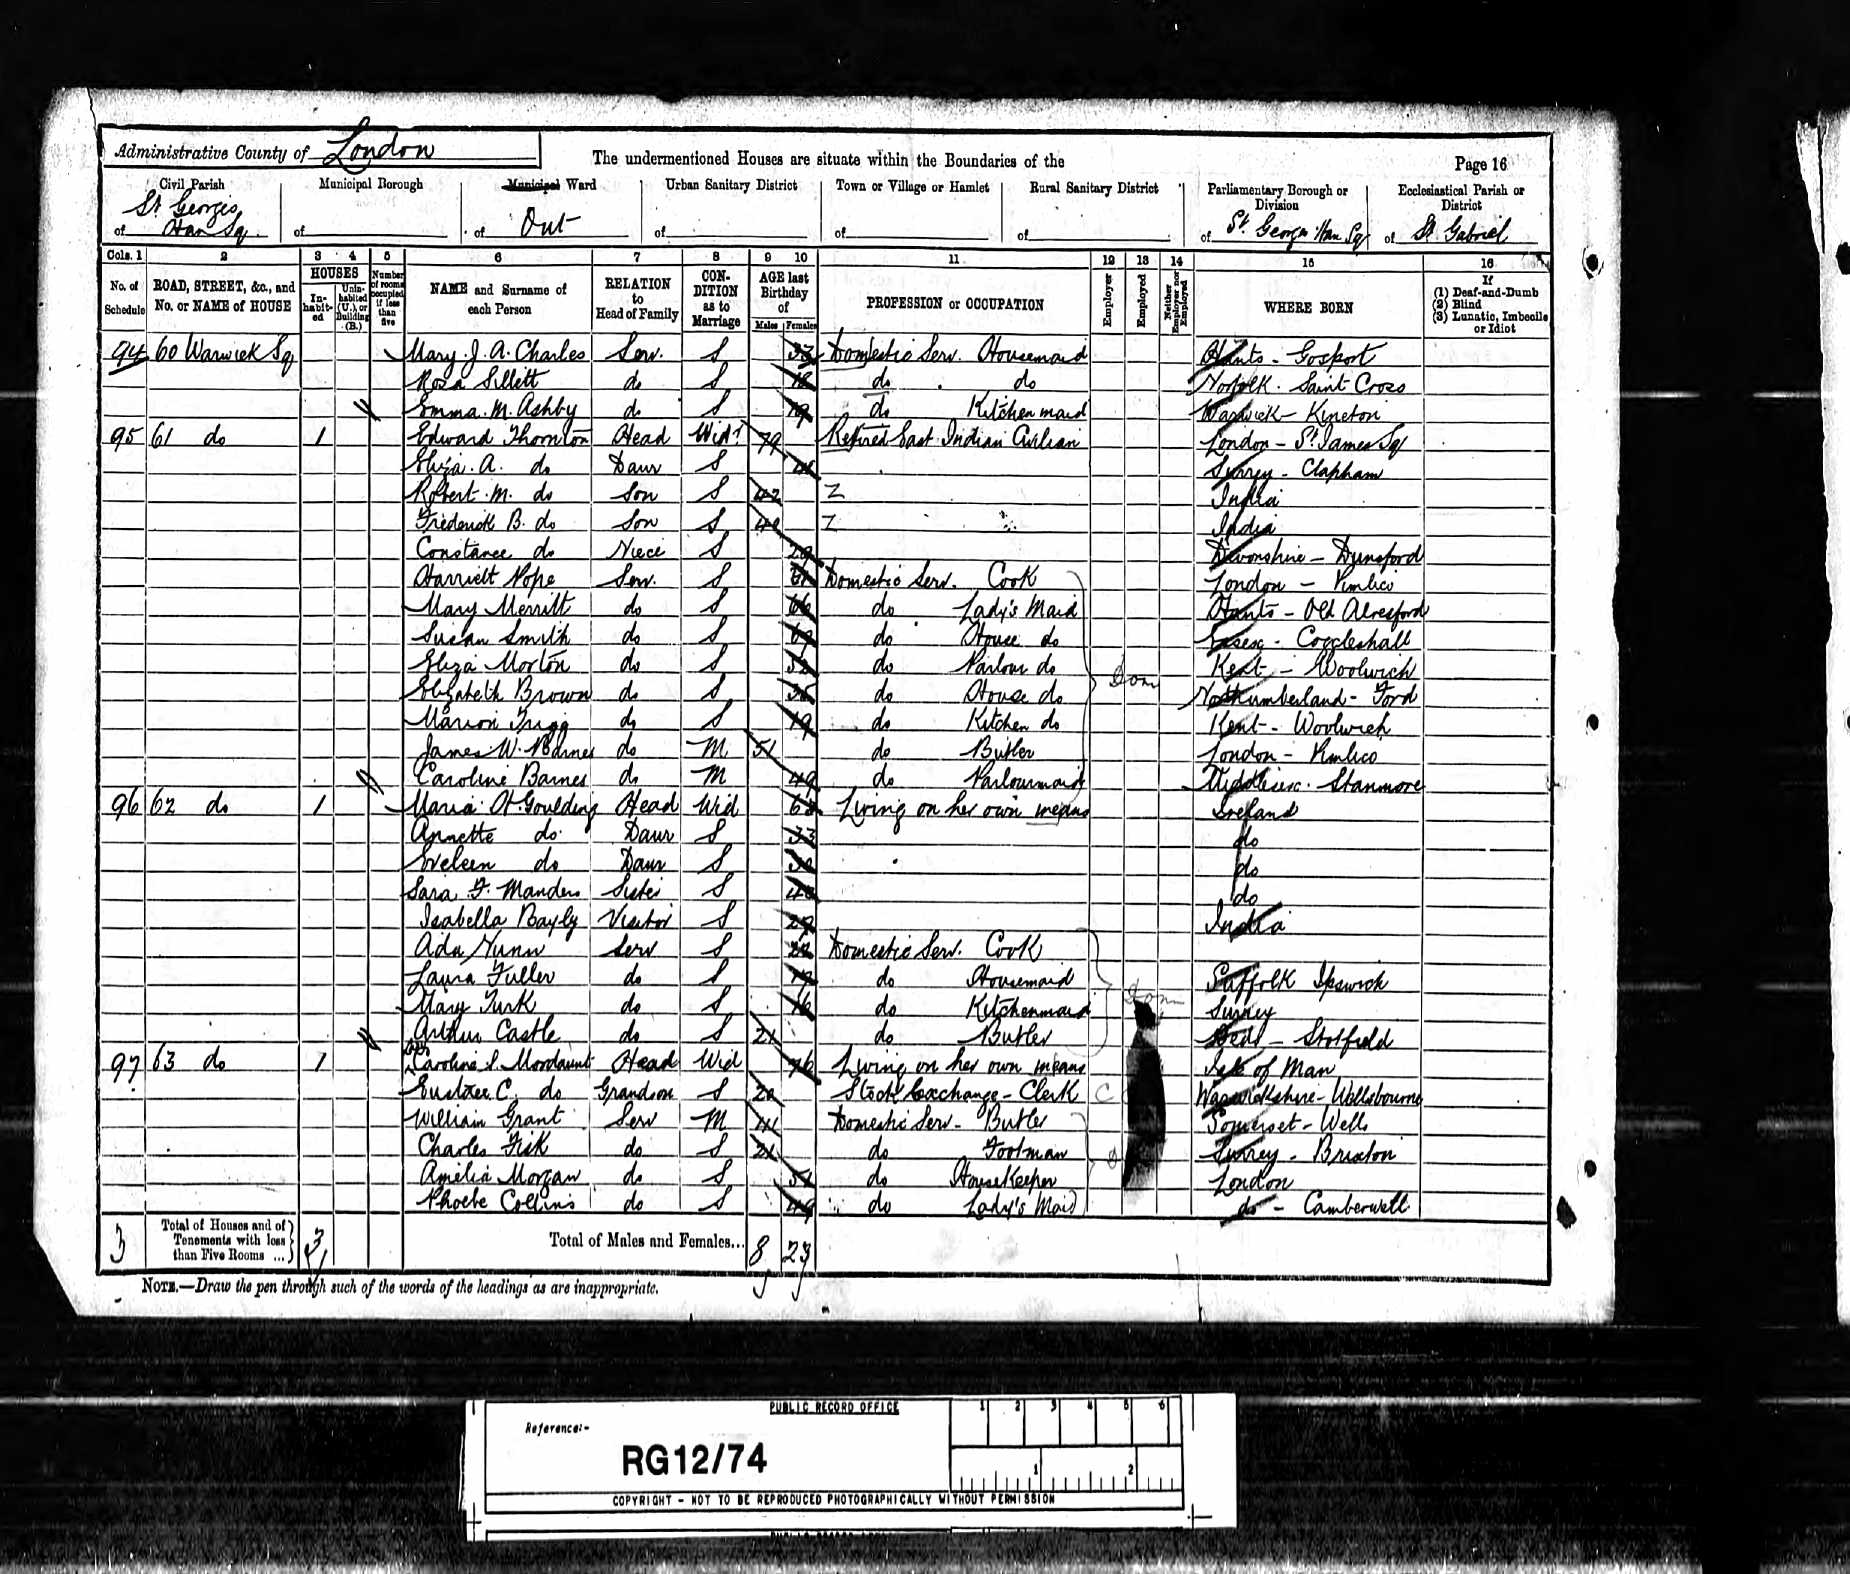 Administrative County of London
The undermentioned Houses are situate within the Boundaries of the
Page 16
Civil Parish
of St Georges Han Sq.
Municipal Borough
of
Municipal Ward
of Out
Urban Sanitary District
of
Town or Village or Hamlet
of
Rural Sanitary District
of
Parliamentary Borough or Division
of St Georges Han Sq
Ecclesiastical Parish or District
of St Gabriel
Cols. 1 2 3 4 5 6 7 8 9 10 11 12 13 14 15 16
No. of Schedule
ROAD, STREET, &c., and No. or NAME of HOUSE
HOUSES
In-habit-ed
Unin-habited (U.), or Building (B.)
Number of rooms occupied if less than five
NAME and Surname of each Person
RELATION to Head of Family
CON-DITION as to Marriage
AGE last Birthday of
Males Females
PROFESSION or OCCUPATION
Employer
Employed
Neither Employer nor Employed
WHERE BORN
If
(1) Deaf-and-Dumb
(2) Blind
(3) Lunatic, Imbecile or Idiot
94 60 Warwick Sq Mary J. A. Charles Serv. S Domestic Serv. Housemaid Hants - Gosport
Rosa Sillett do S do do Norfolk - Saint Cross
Emma M. Ashby do S 19 do Kitchenmaid Warwick - Kineton
95 61 do 1 Edward Thornton Head Widr 79 Retired East Indian Civilian London - St James Sq
Eliza A. do Daur S Surrey - Clapham
Robert M. do Son S 42 India
Frederick B. do Son S 40 India
Constance do Niece S Devonshire - Dunsford
Harriett Pope Serv. S Domestic Serv. Cook London - Pimlico
Mary Merritt do S 66 do Lady's Maid Hants - Old Alresford
Susan Smith do S do House do Essex - Coggleshall
Eliza Morton do S do Parlour do Kent - Woolwich
Elizabeth Brown do S do House do Northumberland - Ford
Dom
Marion Trigg do S 19 do Kitchen do Kent - Woolwich
James W. Barnes do M 51 do Butler London - Pimlico
Caroline Barnes do M 49 do Parlourmaid Middlesex - Stanmore
96 62 do 1 Maria H. Goulding Head Wid Living on her own means Ireland
Annette do Daur S 33 do
Eveleen do Daur S do
Sara F. Manders Sister S do
Isabella Bayly Visitor S India
Ada Nunn Serv S Domestic Serv. Cook
Laura Fuller do S 19 do Housemaid Suffolk Ipswich
Mary Turk do S 16 do Kitchenmaid Dom Surrey
Arthur Castle do S 21 do Butler Beds - Stotfield
97 63 do 1 Caroline S. Mordaunt Head Wid 76 Living on her own means Isle of Man
Eustace C. do Grandson S 20 Stock Exchange - Clerk C Warwickshire - Wellsbourne
William Grant Serv M Domestic Serv - Butler Somerset - Wells
Charles Fisk do S 21 do Footman Surrey - Brixton
Amelia Morgan do S 51 do HouseKeeper London
Phoebe Collins do S 49 do Lady's Maid do - Camberwell
3 Total of Houses and of Tenements with less than Five Rooms ... 3 Total of Males and Females... 8 23
NOTE.—Draw the pen through such of the words of the headings as are inappropriate.
PUBLIC RECORD OFFICE
Reference:-
RG12/74
1 2 3 4 5 6
1 2
COPYRIGHT - NOT TO BE REPRODUCED PHOTOGRAPHICALLY WITHOUT PERMISSION